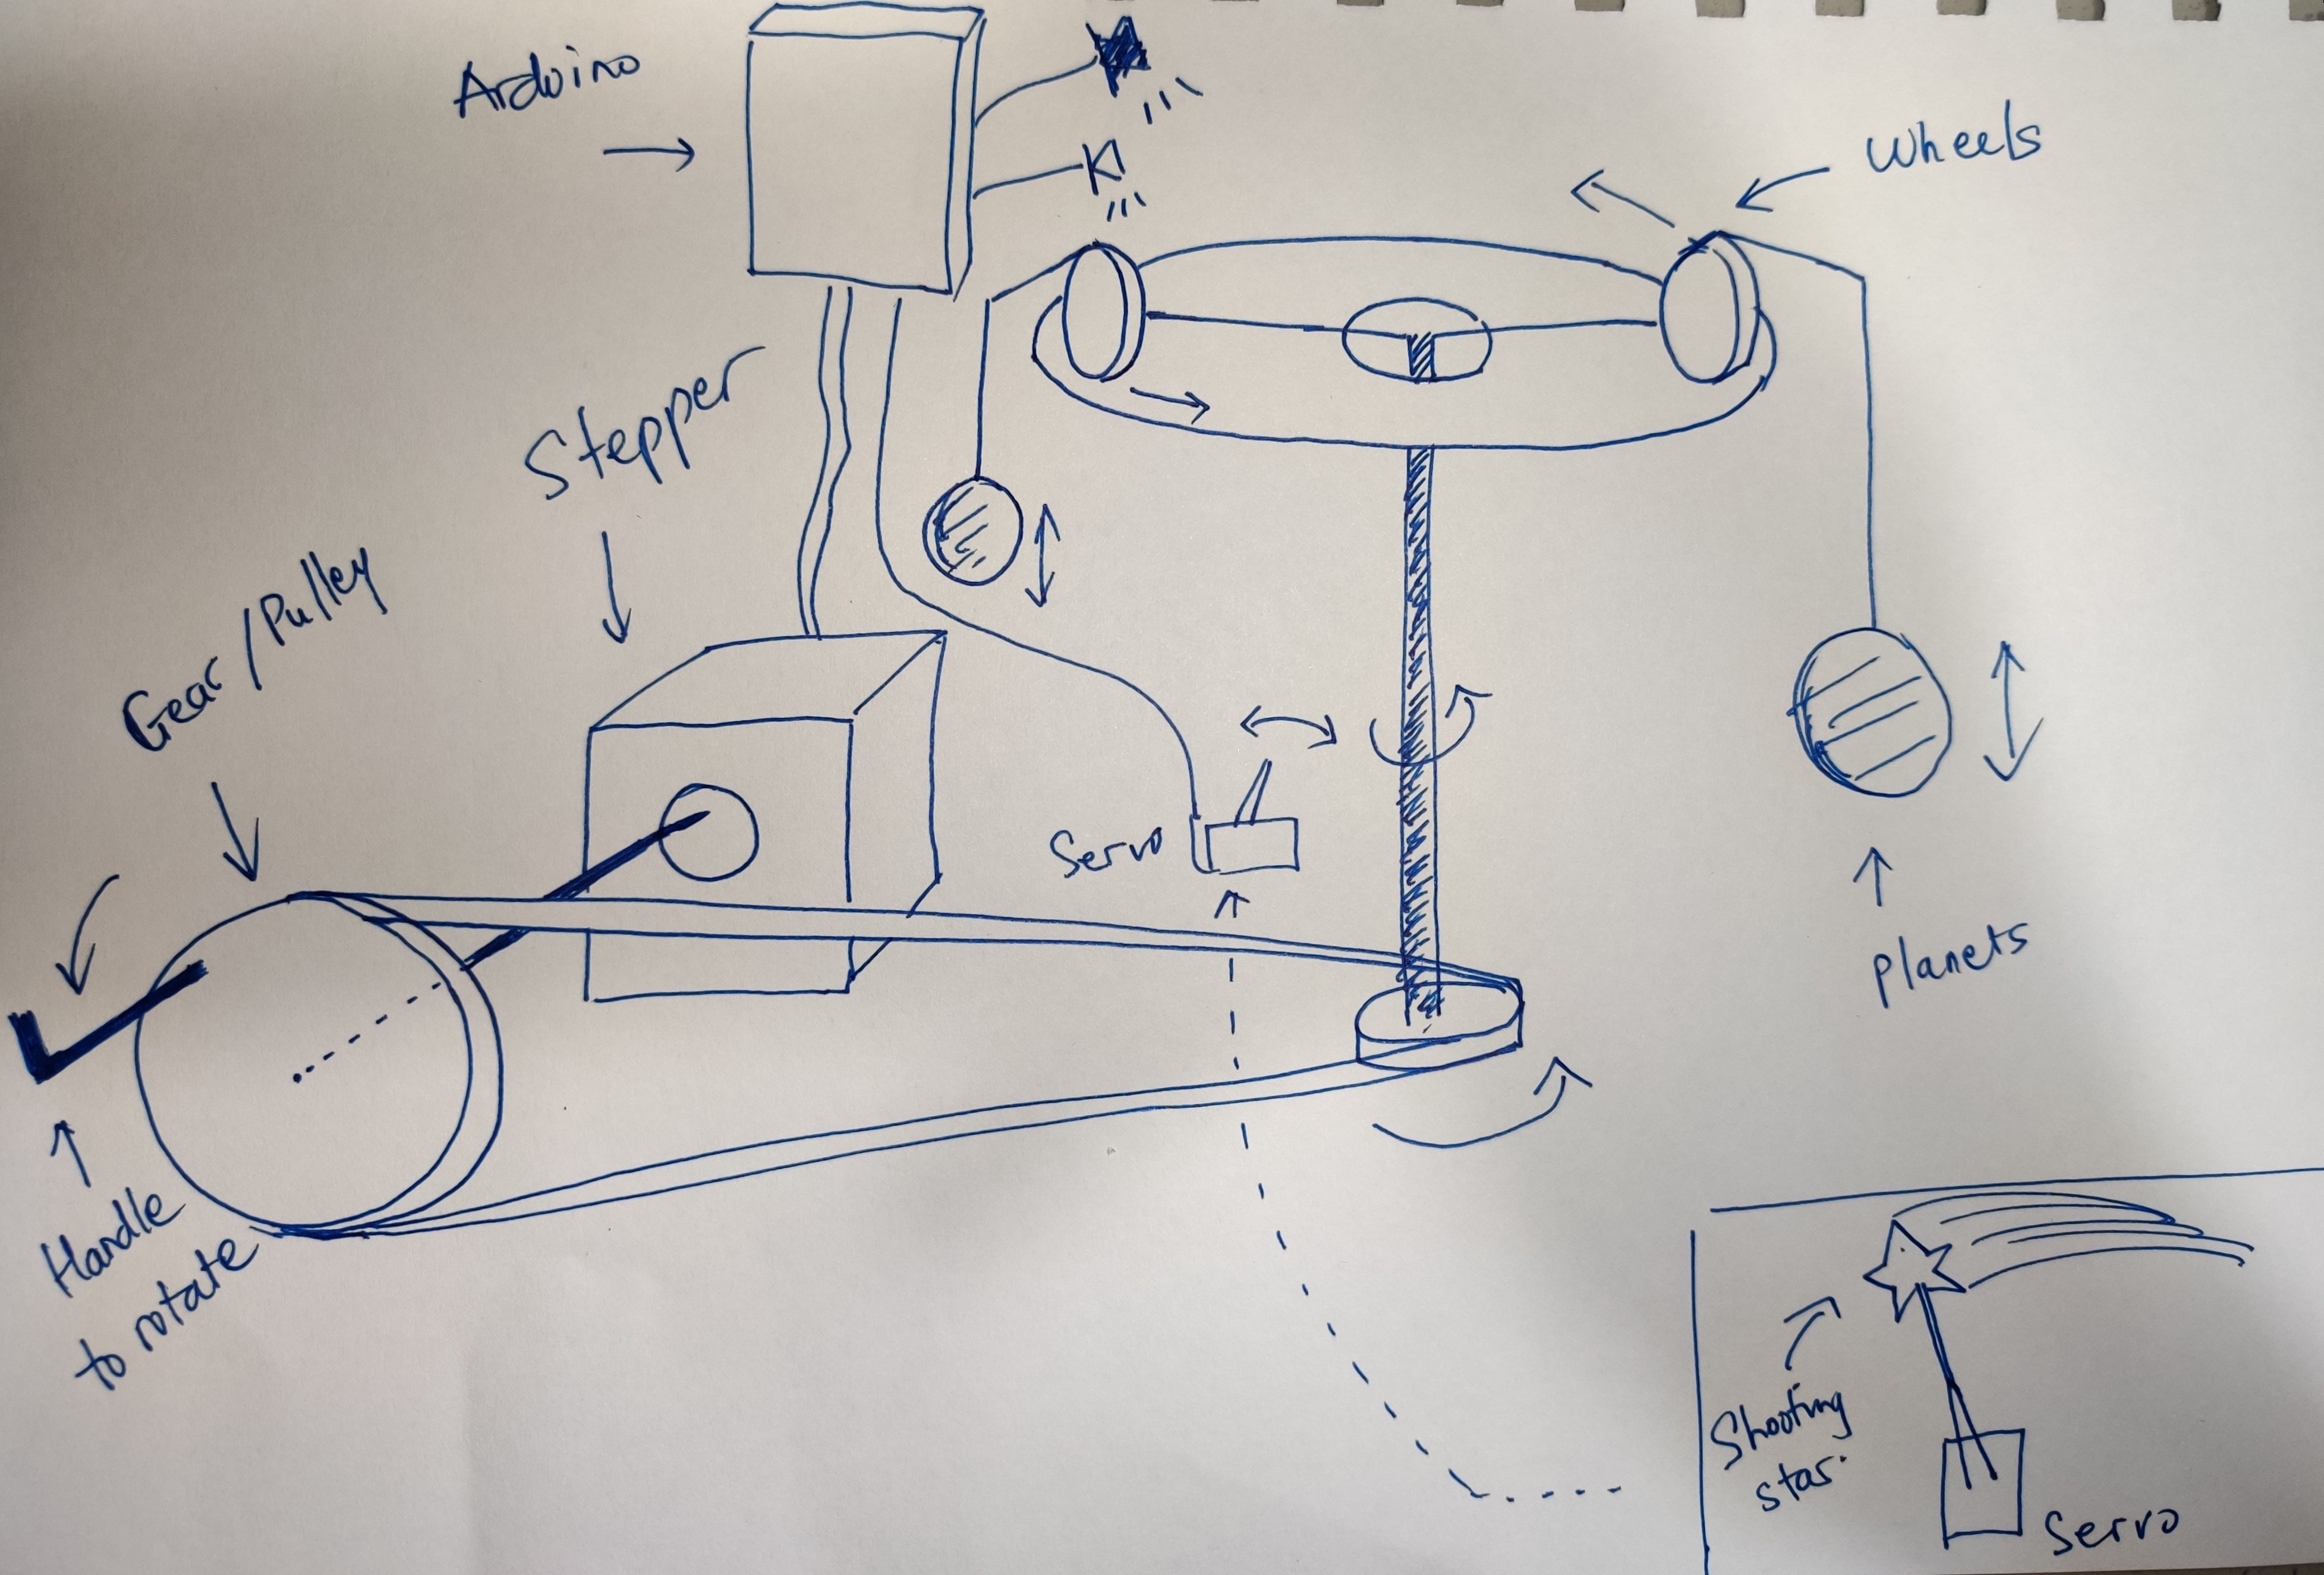 Arduino
Wheels
Stepper
Gear/Pulley
Servo
Planets
Handle
to rotate
Shooting
star
Servo